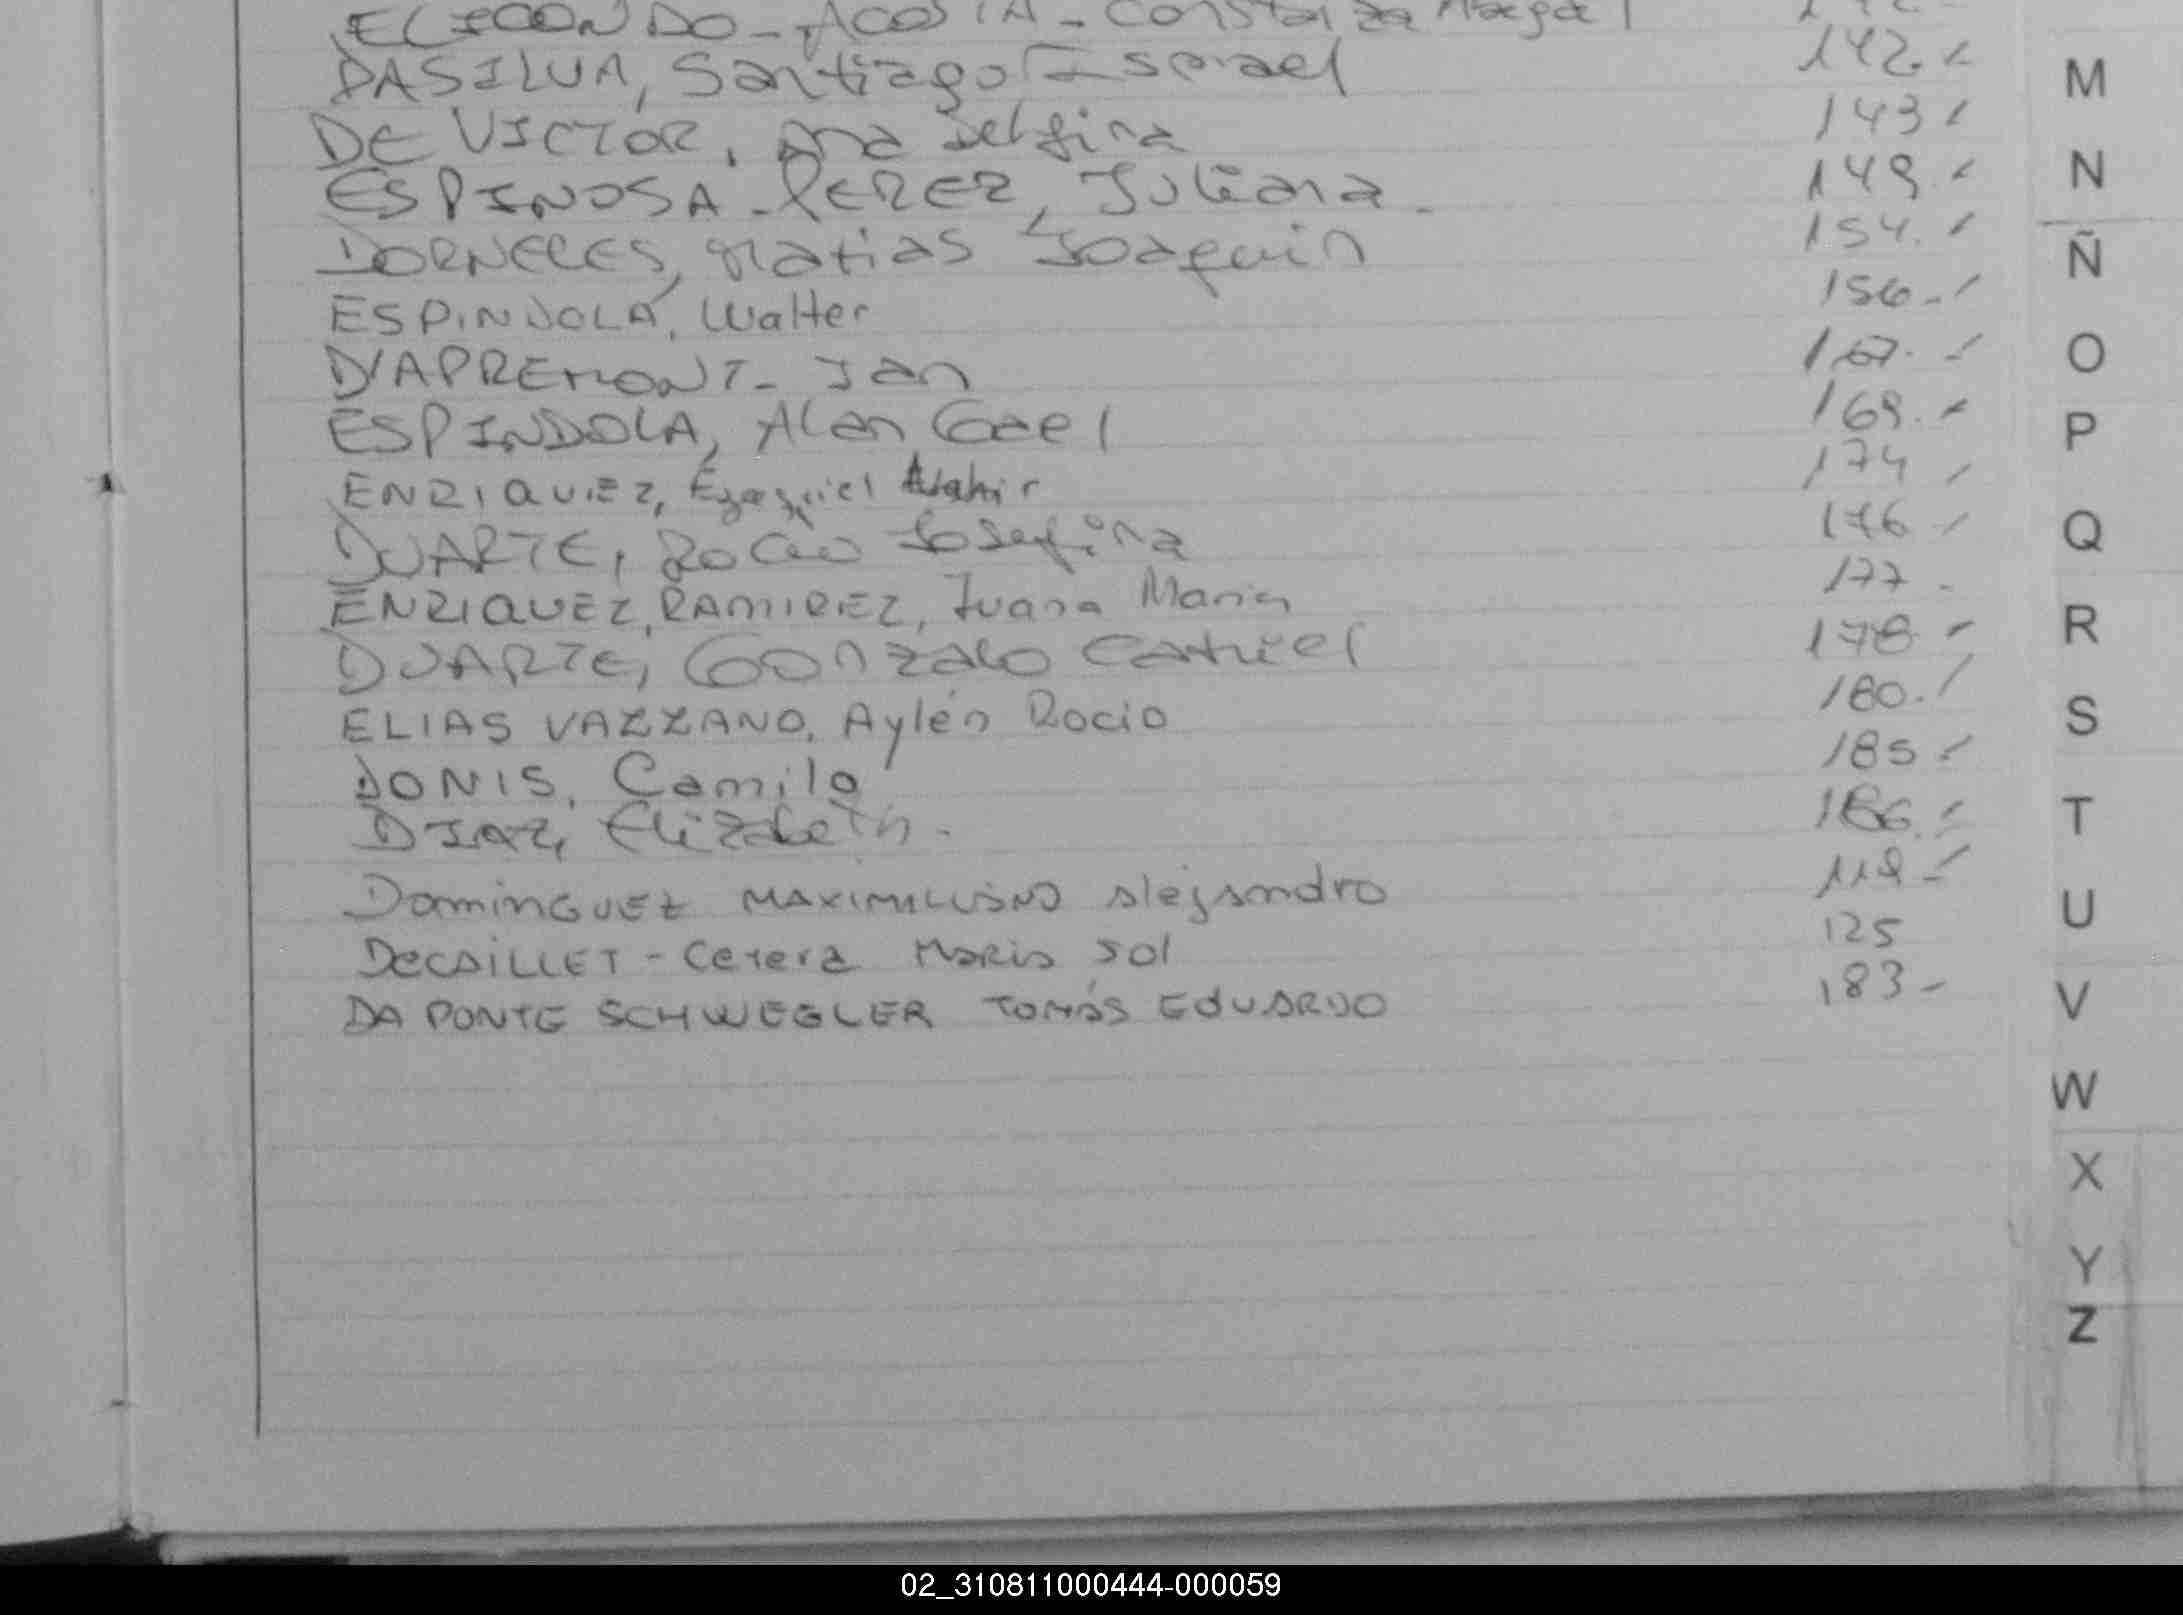 ELICONDO - ACOSTA - Constanza
DASILVA, Santiago Ismael 142.-
DE VICTOR, Ana Delfina 143
ESPINOSA - PEREZ, Juliana - 149.-
DORNELES, Matias Joaquin 154.
ESPINDOLA, Walter 156.-
D'APREMONT - Ian 167.-
ESPINDOLA, Alan Gael 169.-
ENRIQUEZ, Ezequiel 174
DUARTE, Rocio Josefina 176
ENRIQUEZ, RAMIREZ, Juana Maria 177 -
DUARTE, Gonzalo Catriel 178 -
ELIAS VAZZANO, Aylén Rocio 180.
DONIS, Camilo 185
DIAZ, Elizabeth. 186.
DOMINGUEZ MAXIMILIANO Alejandro
DECAILLET - Cerera Maria Sol 125
DA PONTE SCHWEGLER TOMÁS EDUARDO 183 -
M
N
Ñ
O
P
Q
R
S
T
U
V
W
X
Y
Z
02_310811000444-000059